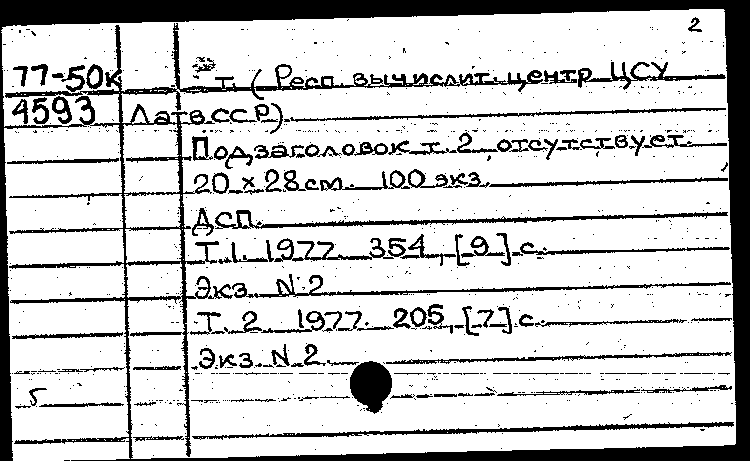 2
77-50к т. (Респ. вычислит. центр ЦСУ
4593 ЛатвССР)
Подзаголовок т. 2 отсутствует.
20 × 28 см. 100 экз.
Дсп.
Т. 1. 1977. 354, [9] с.
Экз. N 2
Т. 2. 1977. 205, [7] с.
Экз. N 2.
5